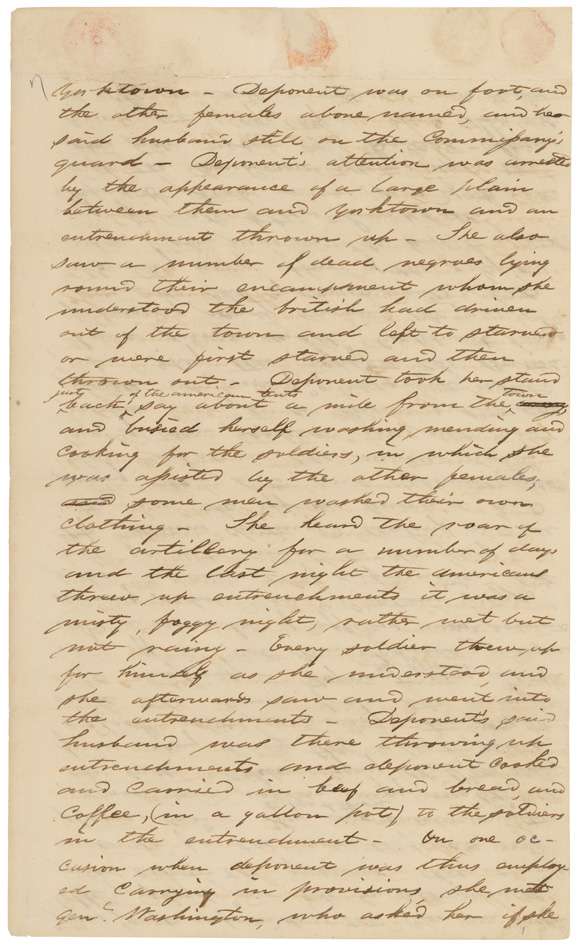 Yorktown – Deponent was on foot, and
the other females above named, and her
said husband still on the Commissary's
guard – Deponent's attention was arrested
by the appearance of a large plain
between them and Yorktown and an
entrenchment thrown up – She also
saw a number of dead negroes lying
round their encampment whom she
understood the british had driven
out of the town and left to starve
or were first starved and then
thrown out – Deponent took her stand
just back of the american tents, say about a mile from the town
and busied herself washing, mending and
cooking for the soldiers, in which she
was assisted by the other females,
some men washed their own
clothing – She heard the roar of
the artillery for a number of days
and the last night the americans
threw up entrenchments it was a
misty, foggy night, rather wet but
not rainy – Every soldier threw up
for himself as she understood, and
she afterwards saw and went into
the entrenchments – Deponent's said
husband was there throwing up
entrenchments and deponent cooked
and carried in beef and bread, and
coffee, (in a gallon pot) to the soldiers
in the entrenchment – On one oc-
casion when deponent was thus employ
ed carrying in provisions, she met
Genl. Washington, who asked her if she